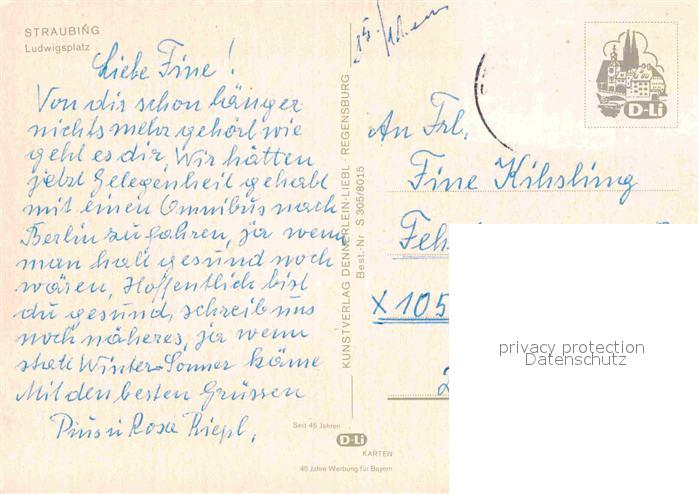 STRAUBING
Ludwigsplatz
Liebe Fine!
Von dir schon länger
nichts mehr gehört wie
geht es dir, Wir hätten
jetzt Gelegenheit gehabt
mit einen Omnibus nach
Berlin zu fahren, ja wenn
man halt gesund noch
wären, Hoffentlich bist
du gesund, schreib uns
noch näheres, ja wenn
statt Winter-Sommer käme
Mit den besten Grüssen
Pius u Rosa Riepl.
KUNSTVERLAG DENNERLEIN-LIEBL · REGENSBURG
Best.-Nr S 305/8015
Seit 45 Jahren
D-Li
KARTEN
45 Jahre Werbung für Bayern
D-Li
An Frl.
Fine Kihsling
Feh
X 105
privacy protection
Datenschutz